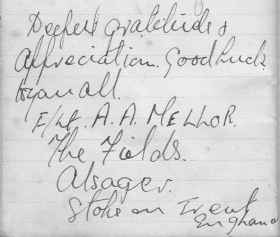 Deepest gratitude &
Appreciation. Good luck
to you all.
F/Lt. A. A. MELLOR.
The Fields.
Alsager.
Stoke on Trent
England